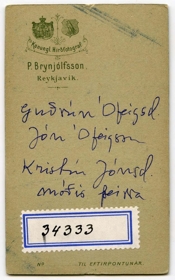 Kgl. Hirðfotograf
P. Brynjólfsson.
Reykjavík.
Guðrún Ófeigsd.
Jón Ófeigsson
Kristín Jónsd.
móðir þeirra
34333
No.
TIL EFTIRPÖNTUNAR.